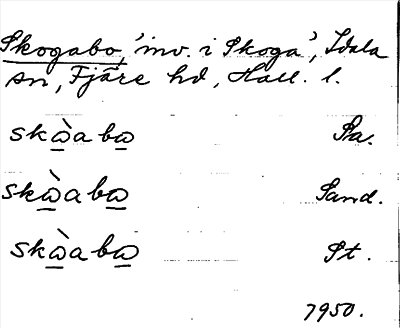 Skogabo, 'inv. i Skoga', Idala
sn, Fjäre hd, Hall. l.
skàaba Sa.
skàaba Sand.
skàaba St.
1950.